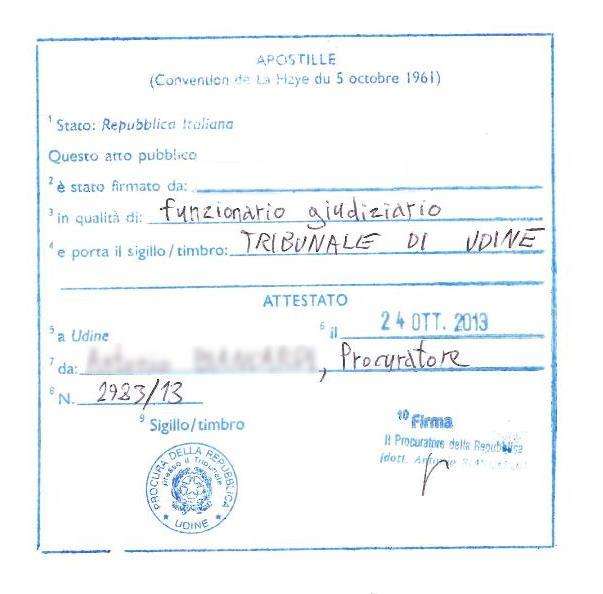 APOSTILLE
(Convention de La Haye du 5 octobre 1961)
1 Stato: Repubblica Italiana
Questo atto pubblico
2 è stato firmato da:
3 in qualità di: funzionario giudiziario
4 e porta il sigillo/timbro: TRIBUNALE DI UDINE
ATTESTATO
5 a Udine
6 il 24 OTT. 2013
7 da: , Procuratore
8 N. 2983/13
9 Sigillo/timbro
10 Firma
Il Procuratore della Repubblica
(dott. Antonio
PROCURA DELLA REPUBBLICA
presso il Tribunale
UDINE